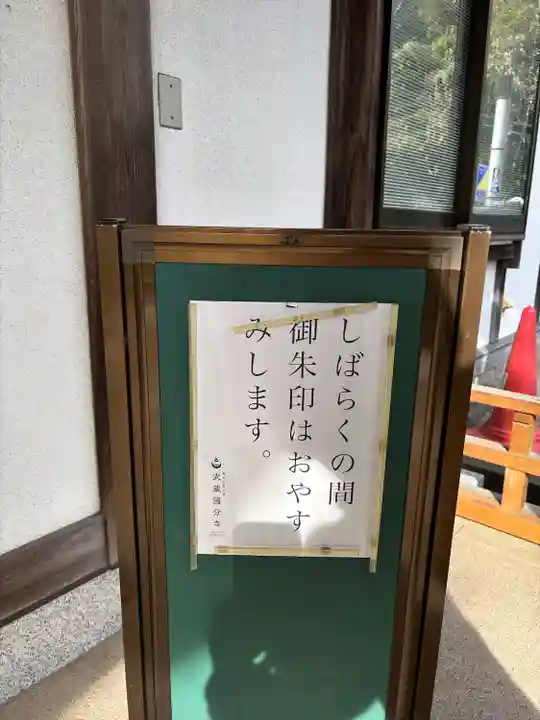 しばらくの間
御朱印はおやす
みします。
武蔵國分寺